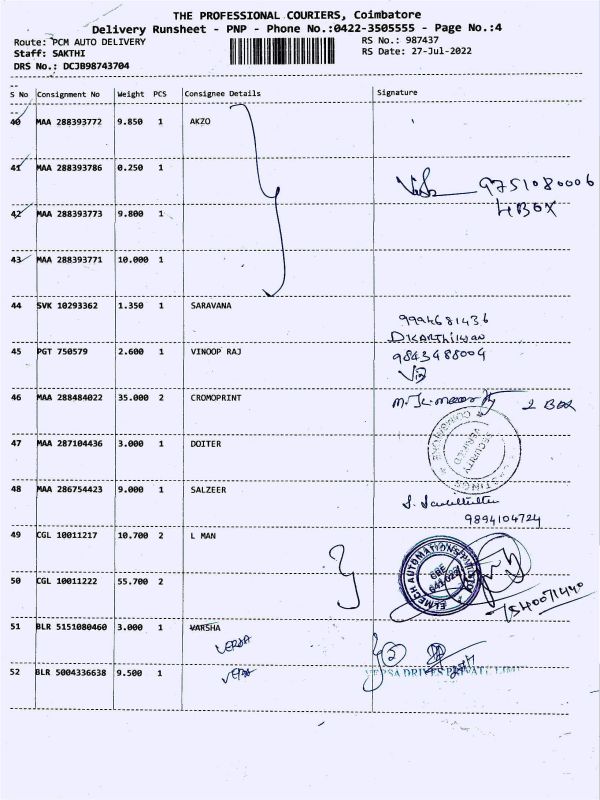 THE PROFESSIONAL COURIERS, Coimbatore
Delivery Runsheet - PNP - Phone No.:0422-3505555 - Page No.:4
Route: PCM AUTO DELIVERY RS No.: 987437
Staff: SAKTHI RS Date: 27-Jul-2022
DRS No.: DCJB98743704
S No Consignment No Weight PCS Consignee Details Signature
40 MAA 288393772 9.850 1 AKZO
41 MAA 288393786 0.250 1
9751080006
42 MAA 288393773 9.800 1 4 BOX
43 MAA 288393771 10.000 1
44 SVK 10293362 1.350 1 SARAVANA
9994681436
45 PGT 750579 2.600 1 VINOOP RAJ
9843488004
46 MAA 288484022 35.000 2 CROMOPRINT 2 BOX
47 MAA 287104436 3.000 1 DOITER
SECURITY
VERIFIED
48 MAA 286754423 9.000 1 SALZEER
9894104724
49 CGL 10011217 10.700 2 L MAN
ELMECH AUTOMATIONS
50 CGL 10011222 55.700 2
7540071440
51 BLR 5151080460 3.000 1 VARSHA
VERSA
52 BLR 5004336638 9.500 1 VERSA
VERSA DRIVES PRIVATE LIMI